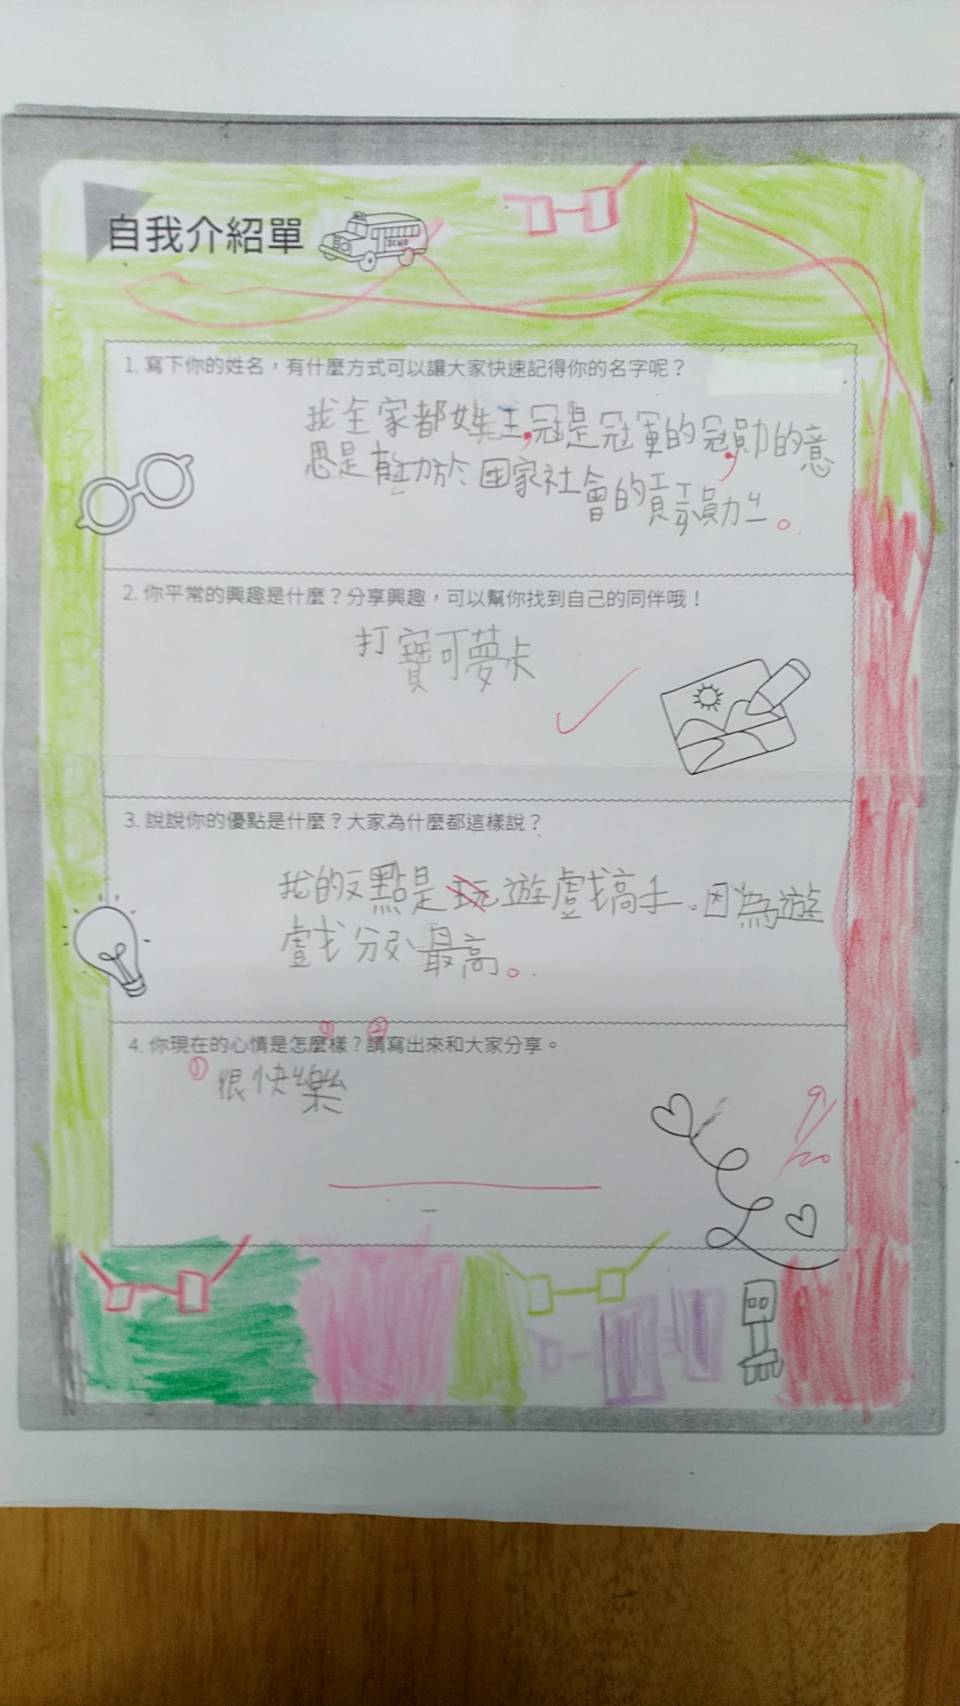 自我介紹單
1. 寫下你的姓名，有什麼方式可以讓大家快速記得你的名字呢？
我全家都姓王,冠是冠軍的冠,勛的意
思是有功於國家社會的貢勛。
2. 你平常的興趣是什麼？分享興趣，可以幫你找到自己的同伴哦！
打寶可夢卡
3. 說說你的優點是什麼？大家為什麼都這樣說？
我的點是遊戲高手。因為遊
戲分最高。
4. 你現在的心情是怎麼樣？請寫出來和大家分享。
① ②
① 很快樂
9/20